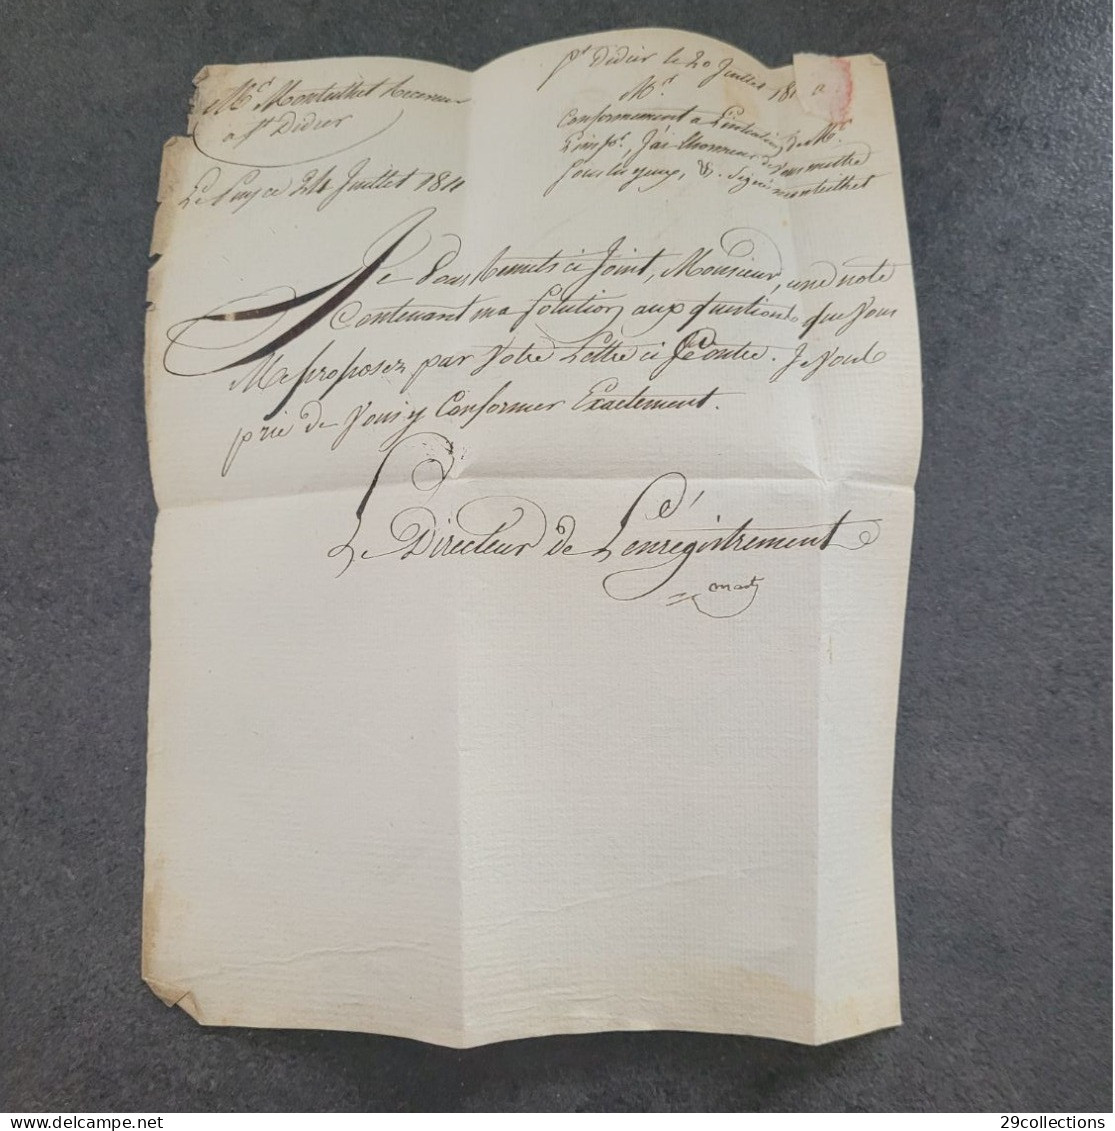 Mr. Monteilhet Receveur
a St Didier
Le Puy ce 24 Juillet 1811
St Didier le 20 Juillet 181
Mr
Conformement a de Mr.
J'ai l'honneur de vous mettre
Sous les yeux, &. Signé monteilhet
Je Vous Remets ci Joint, Monsieur, une note
Contenant ma Solution aux questions que Vous
Me proposez par Votre Lettre ci Contre. Je Vous
prie de Vous y Conformer Exactement.
Le Directeur de L'enrégistrement
29collections